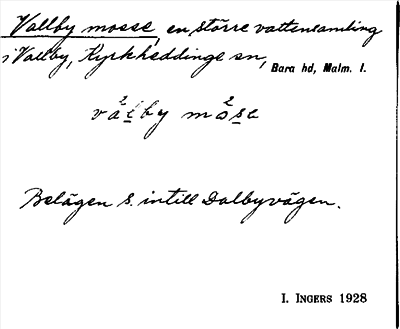 Vallby mosse, en större vattensamling
i Vallby, Kyrkheddinge sn, Bara hd, Malm. l.
vál̲by mós̲e
Belägen S. intill Dalbyvägen.
I. INGERS 1928